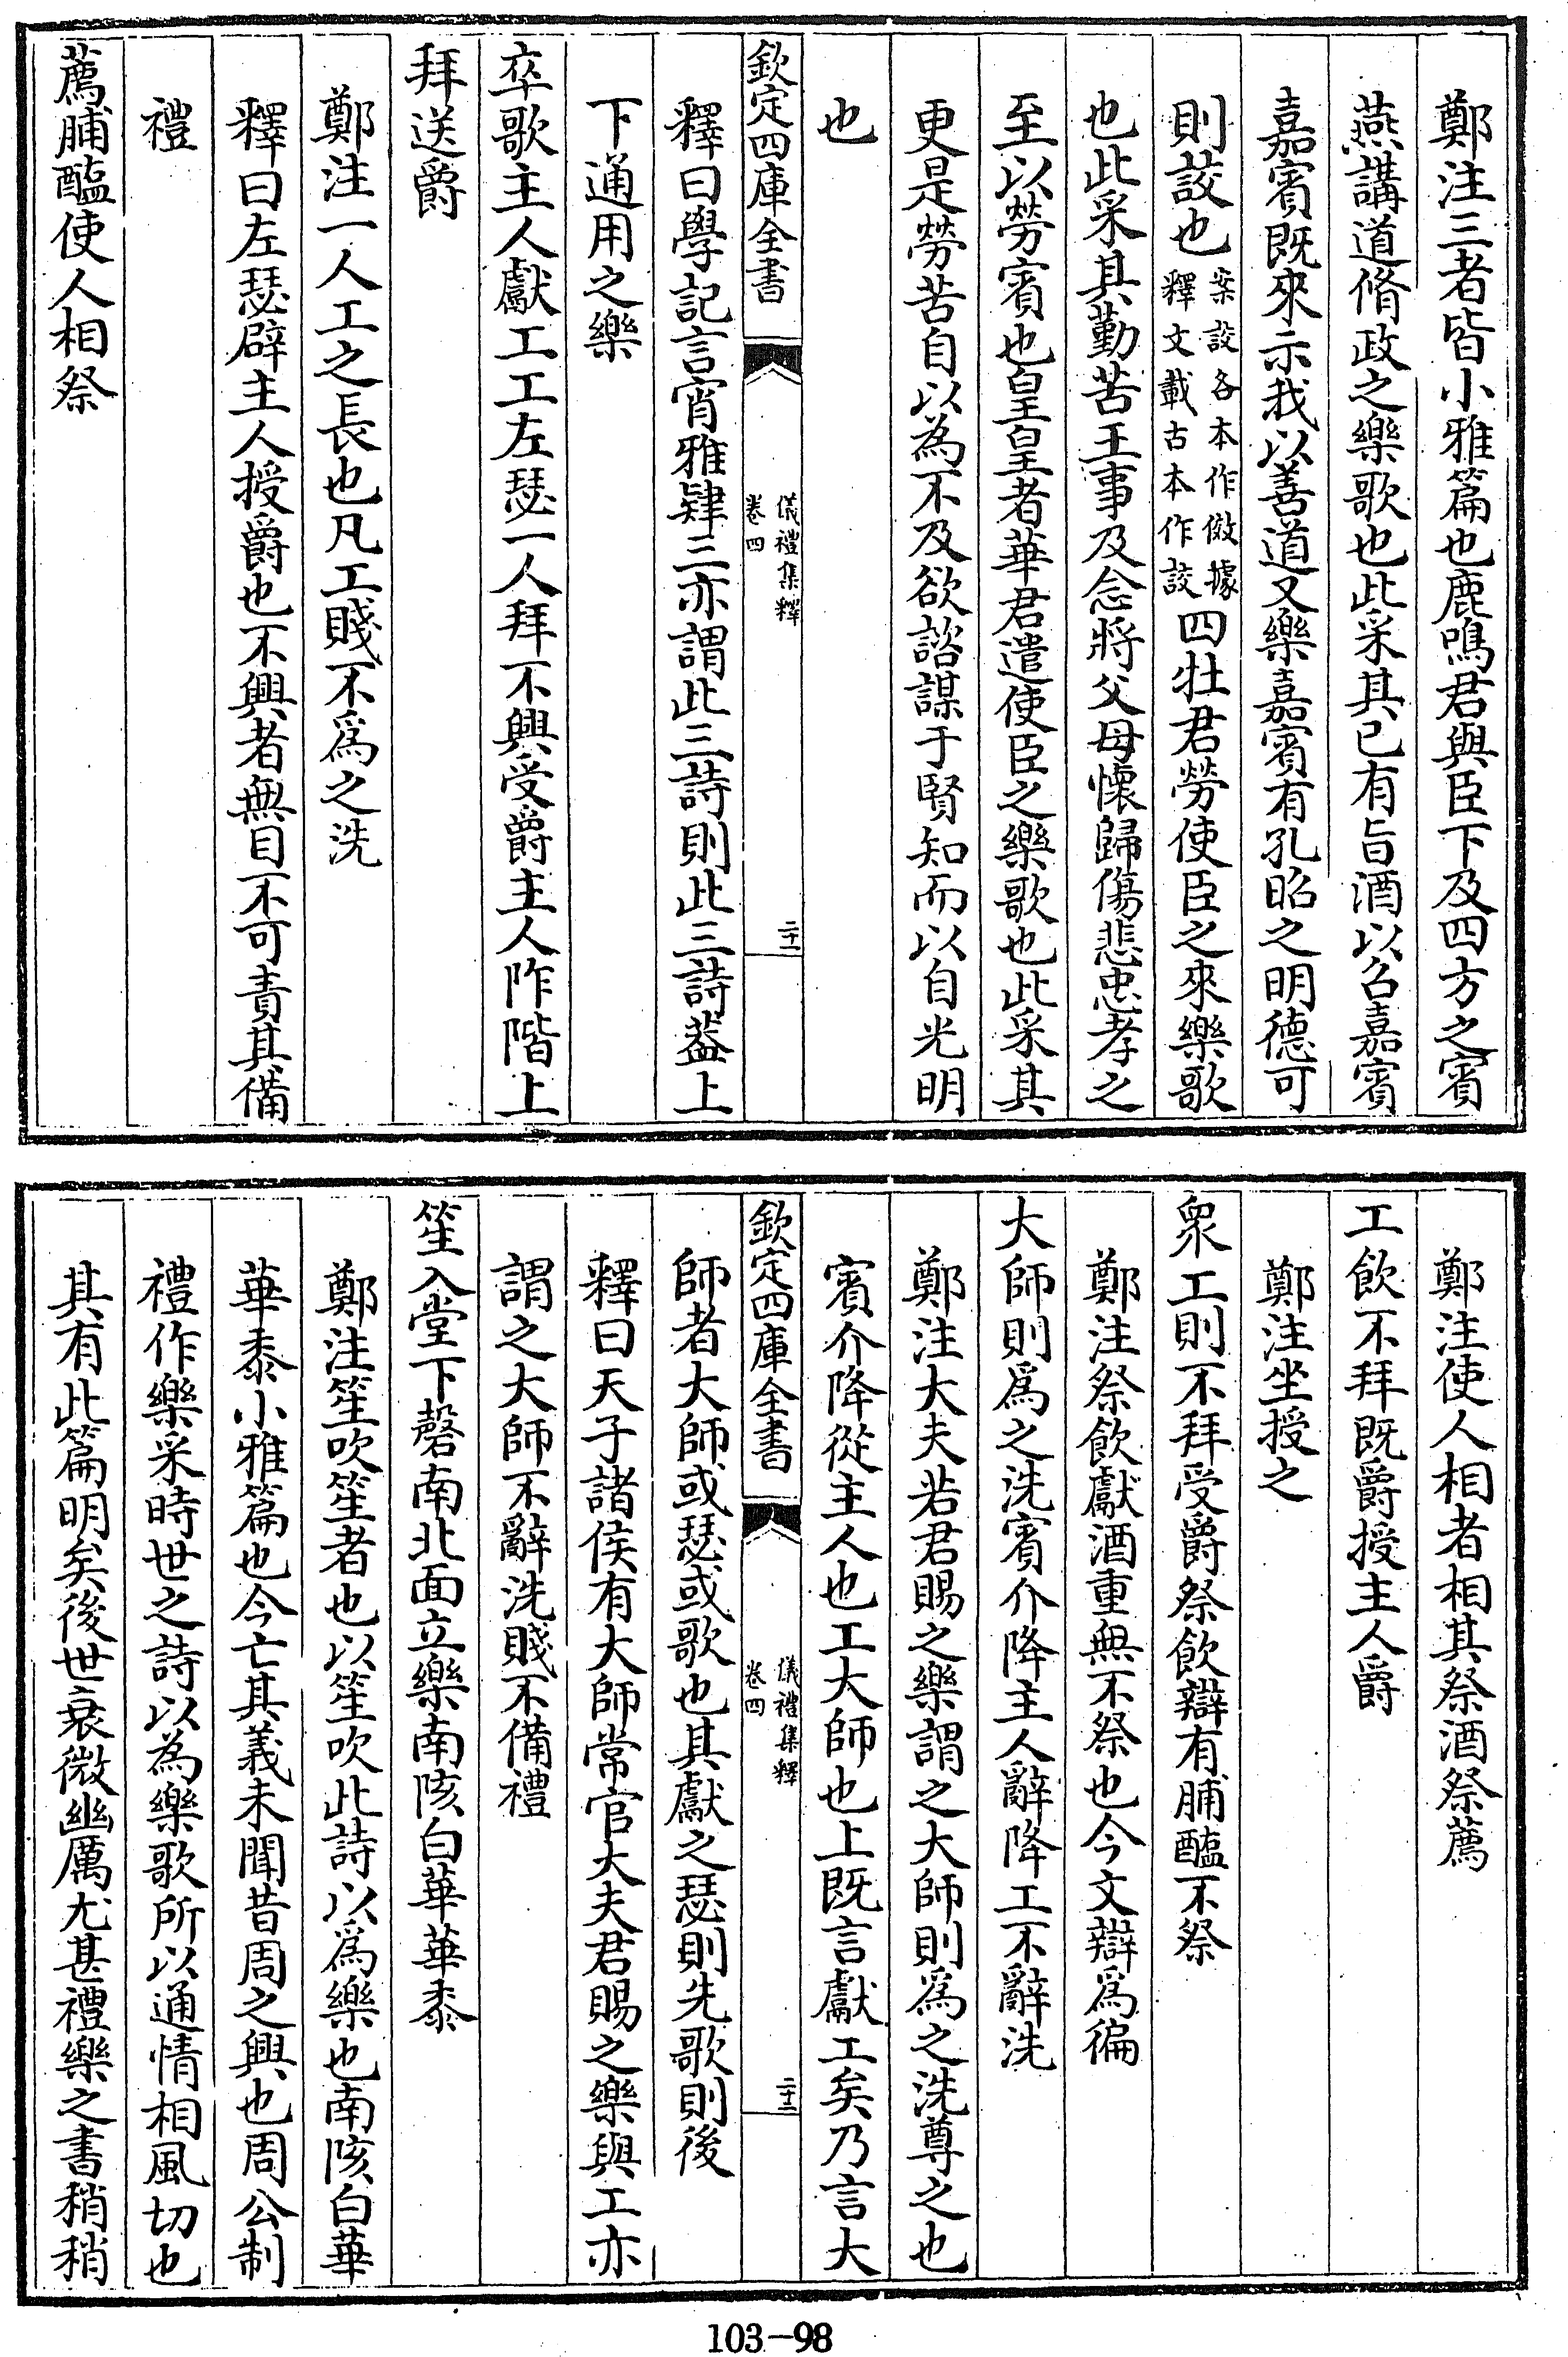 鄭注三者皆小雅篇也鹿鳴君與臣下及四方之賓
燕講道脩政之樂歌也此采其已有旨酒以召嘉賓
嘉賓既來示我以善道又樂嘉賓有孔昭之明德可
則詨也案詨各本作傚據釋文載古本作詨四牡君勞使臣之來樂歌
也此采其勤苦王事及念將父母懷歸傷悲忠孝之
至以勞賓也皇皇者華君遣使臣之樂歌也此采其
更是勞苦自以為不及欲諮謀于賢知而以自光明
也
欽定四庫全書
儀禮集釋
卷四
二十一
釋曰學記言宵雅肄三亦謂此三詩則此三詩葢上
下通用之樂
卒歌主人獻工工左瑟一人拜不興受爵主人阼階上
拜送爵
鄭注一人工之長也凡工賤不為之洗
釋曰左瑟辟主人授爵也不興者無目不可責其備
禮
薦脯醢使人相祭
鄭注使人相者相其祭酒祭薦
工飲不拜既爵授主人爵
鄭注坐授之
衆工則不拜受爵祭飲辯有脯醢不祭
鄭注祭飲獻酒重無不祭也今文辯為徧
大師則為之洗賓介降主人辭降工不辭洗
鄭注大夫若君賜之樂謂之大師則為之洗尊之也
賓介降從主人也工大師也上既言獻工矣乃言大
欽定四庫全書
儀禮集釋
卷四
二十二
師者大師或瑟或歌也其獻之瑟則先歌則後
釋曰天子諸侯有大師常官大夫君賜之樂與工亦
謂之大師不辭洗賤不備禮
笙入堂下磬南北面立樂南陔白華華黍
鄭注笙吹笙者也以笙吹此詩以為樂也南陔白華
華黍小雅篇也今亡其義未聞昔周之興也周公制
禮作樂采時世之詩以為樂歌所以通情相風切也
其有此篇明矣後世衰微幽厲尤甚禮樂之書稍稍
103-98